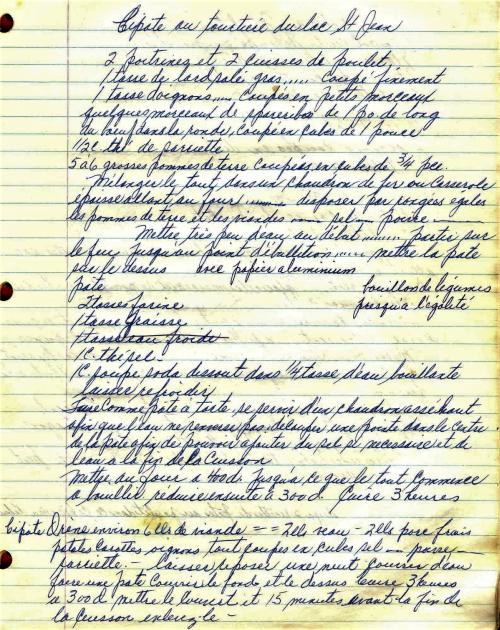 Cipate au tourtière du lac St Jean
2 poitrines et 2 cuisses de poulet,
1 tasse de lard salé gras,.... coupé finement
1 tasse d'oignons,.... coupés en petits morceaux
quelques morceaux de spareribs de 1 po. de long
du boeuf dans la ronde, coupé en cubes de 1 pouce
1/2 c. thé de sarriette
5 a 6 grosses pommes de terre coupées, en cubes de 3/4 pce.
Mélanger le tout dans un chaudron de fer ou casserole
épaisse allant au four ........ disposer par rangées egales
les pommes de terre et les viandes ..... sel .... poivre ......
Mettre très peu d'eau au début ........ partir sur
le feu jusqu'au point d'ébullition ..... mettre la pâte
sur le dessus avec papier aluminium
pate
bouillons de légumes
presqu'a l'égalité
2 tasses farine
1 tasse graisse
1 tasse eau froide
1 c. thé sel
1 c. soupe soda dissout dans 1/4 tasse d'eau bouillante
laisser refroidir
Faire comme pâte a tarte, se servir d'un chaudron assé haut
afin que l'eau ne renverse pas, découper une pointe dans le centre
de la pâte afin de pouvoir ajouter du sel si necessaire et de
l'eau a la fin de la cuisson
Mettre au four a 400d. jusqu'a ce que le tout commence
a bouillir reduire ensuite à 300d. Cuire 3 heures
Cipate Irène environ 6 lbs de viande = = 2 lbs veau - 2 lbs porc frais
patates carottes oignons tout coupés en cubes sel - poivre -
sarriette. - laisser reposer une nuit couvrir d'eau
faire une pâte couvrir le fond et le dessus cuire 3 heures
a 300d mettre le couvert et 15 minutes avant la fin de
la cuisson enlevez-le -